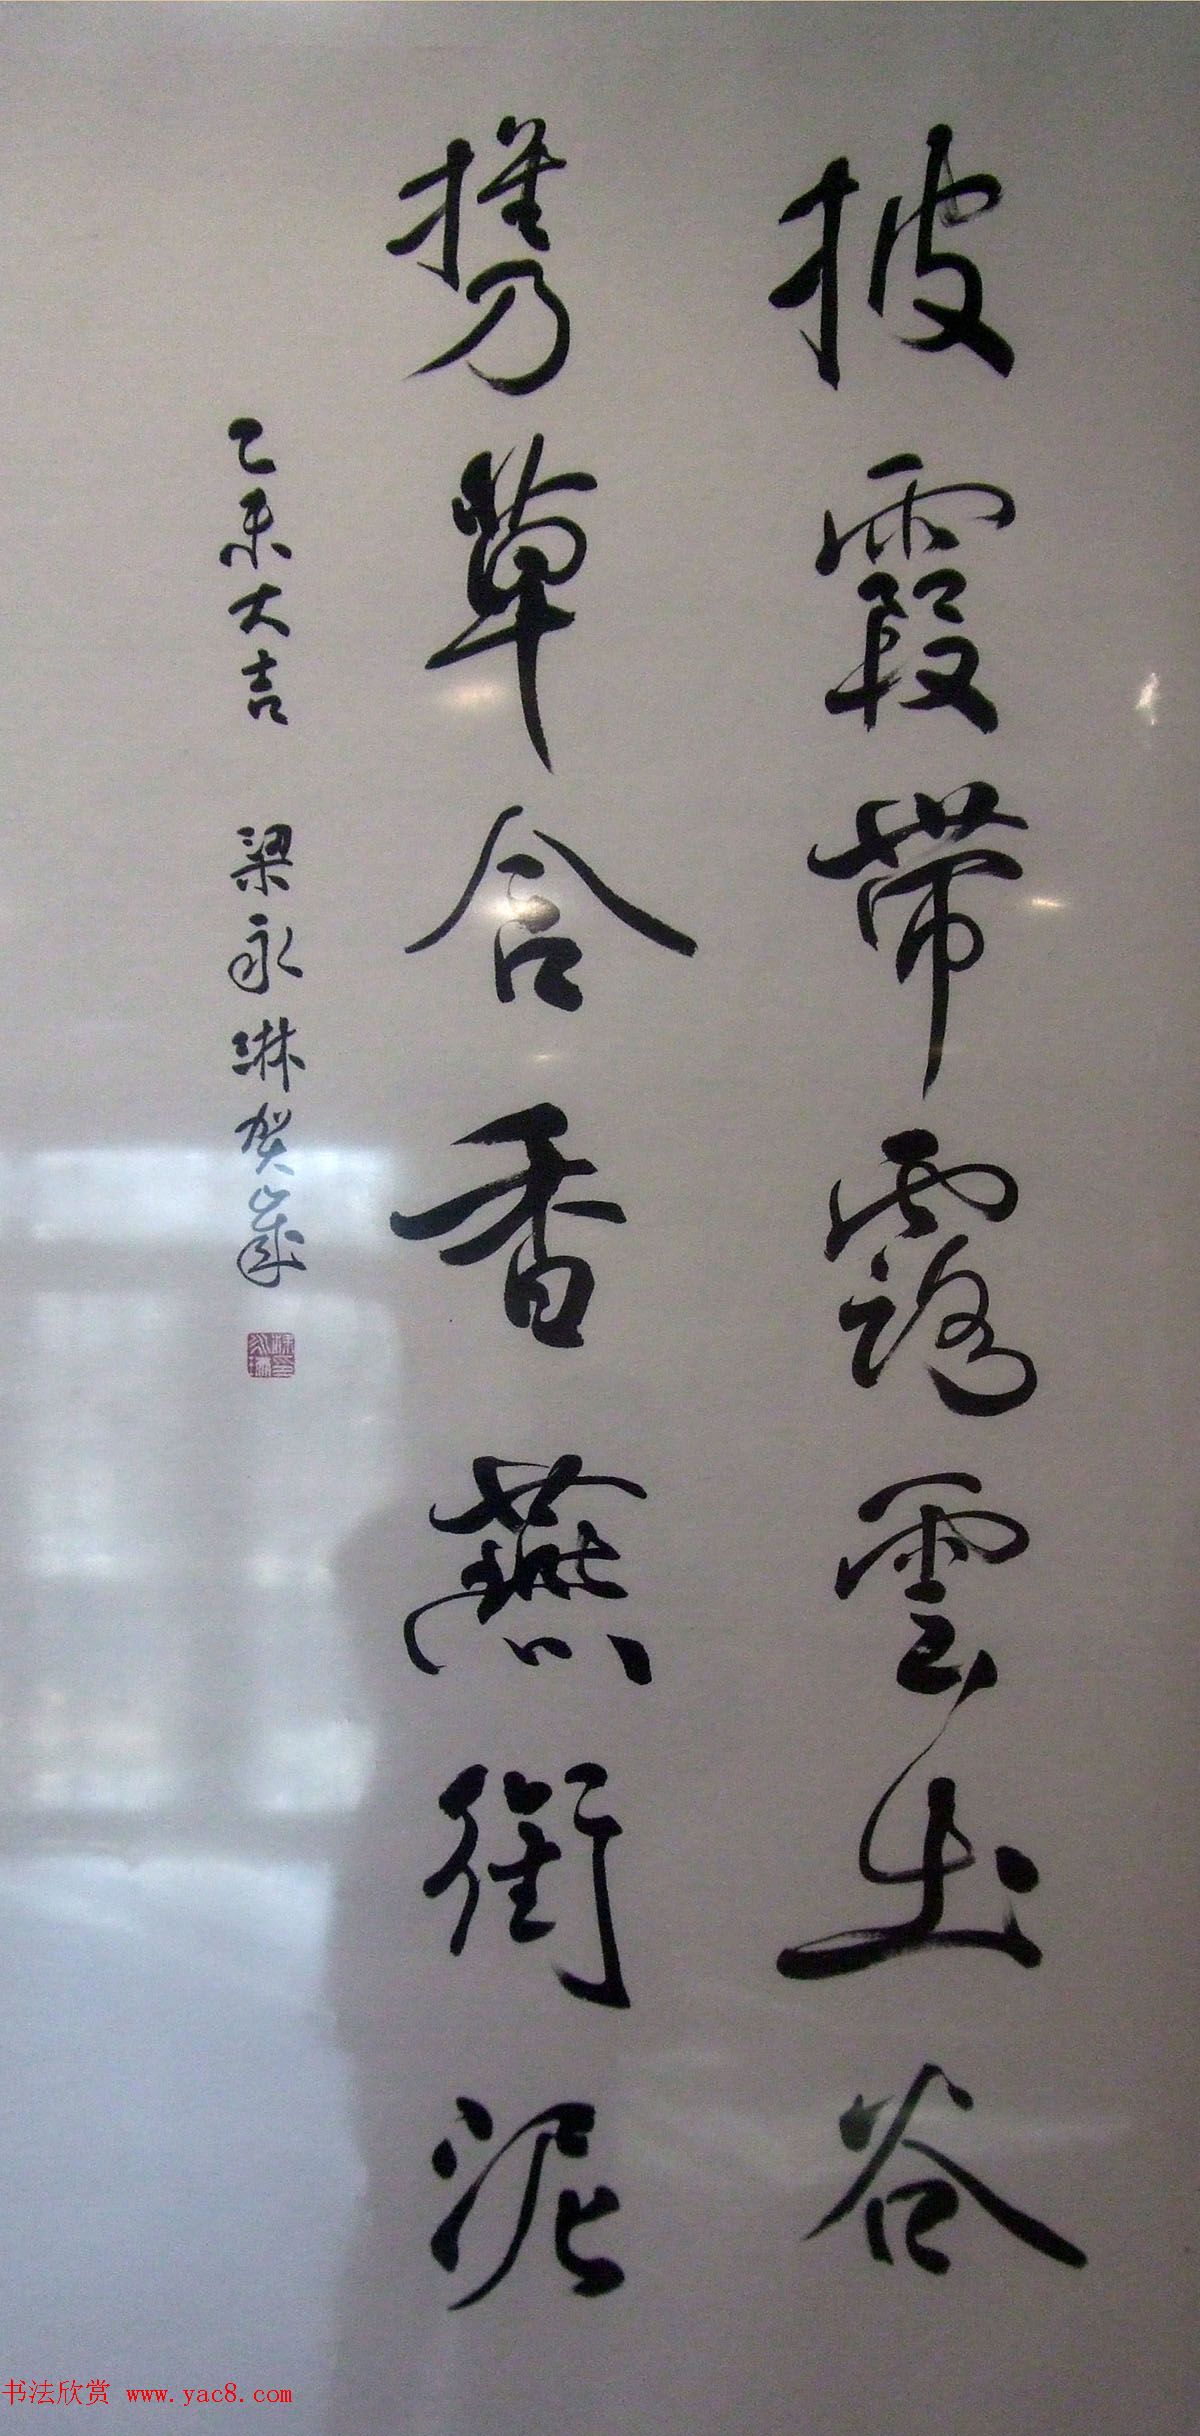 披霞帶露雲出谷
携草含香燕銜泥
乙未大吉 梁永琳賀歲
书法欣赏 www.yac8.com